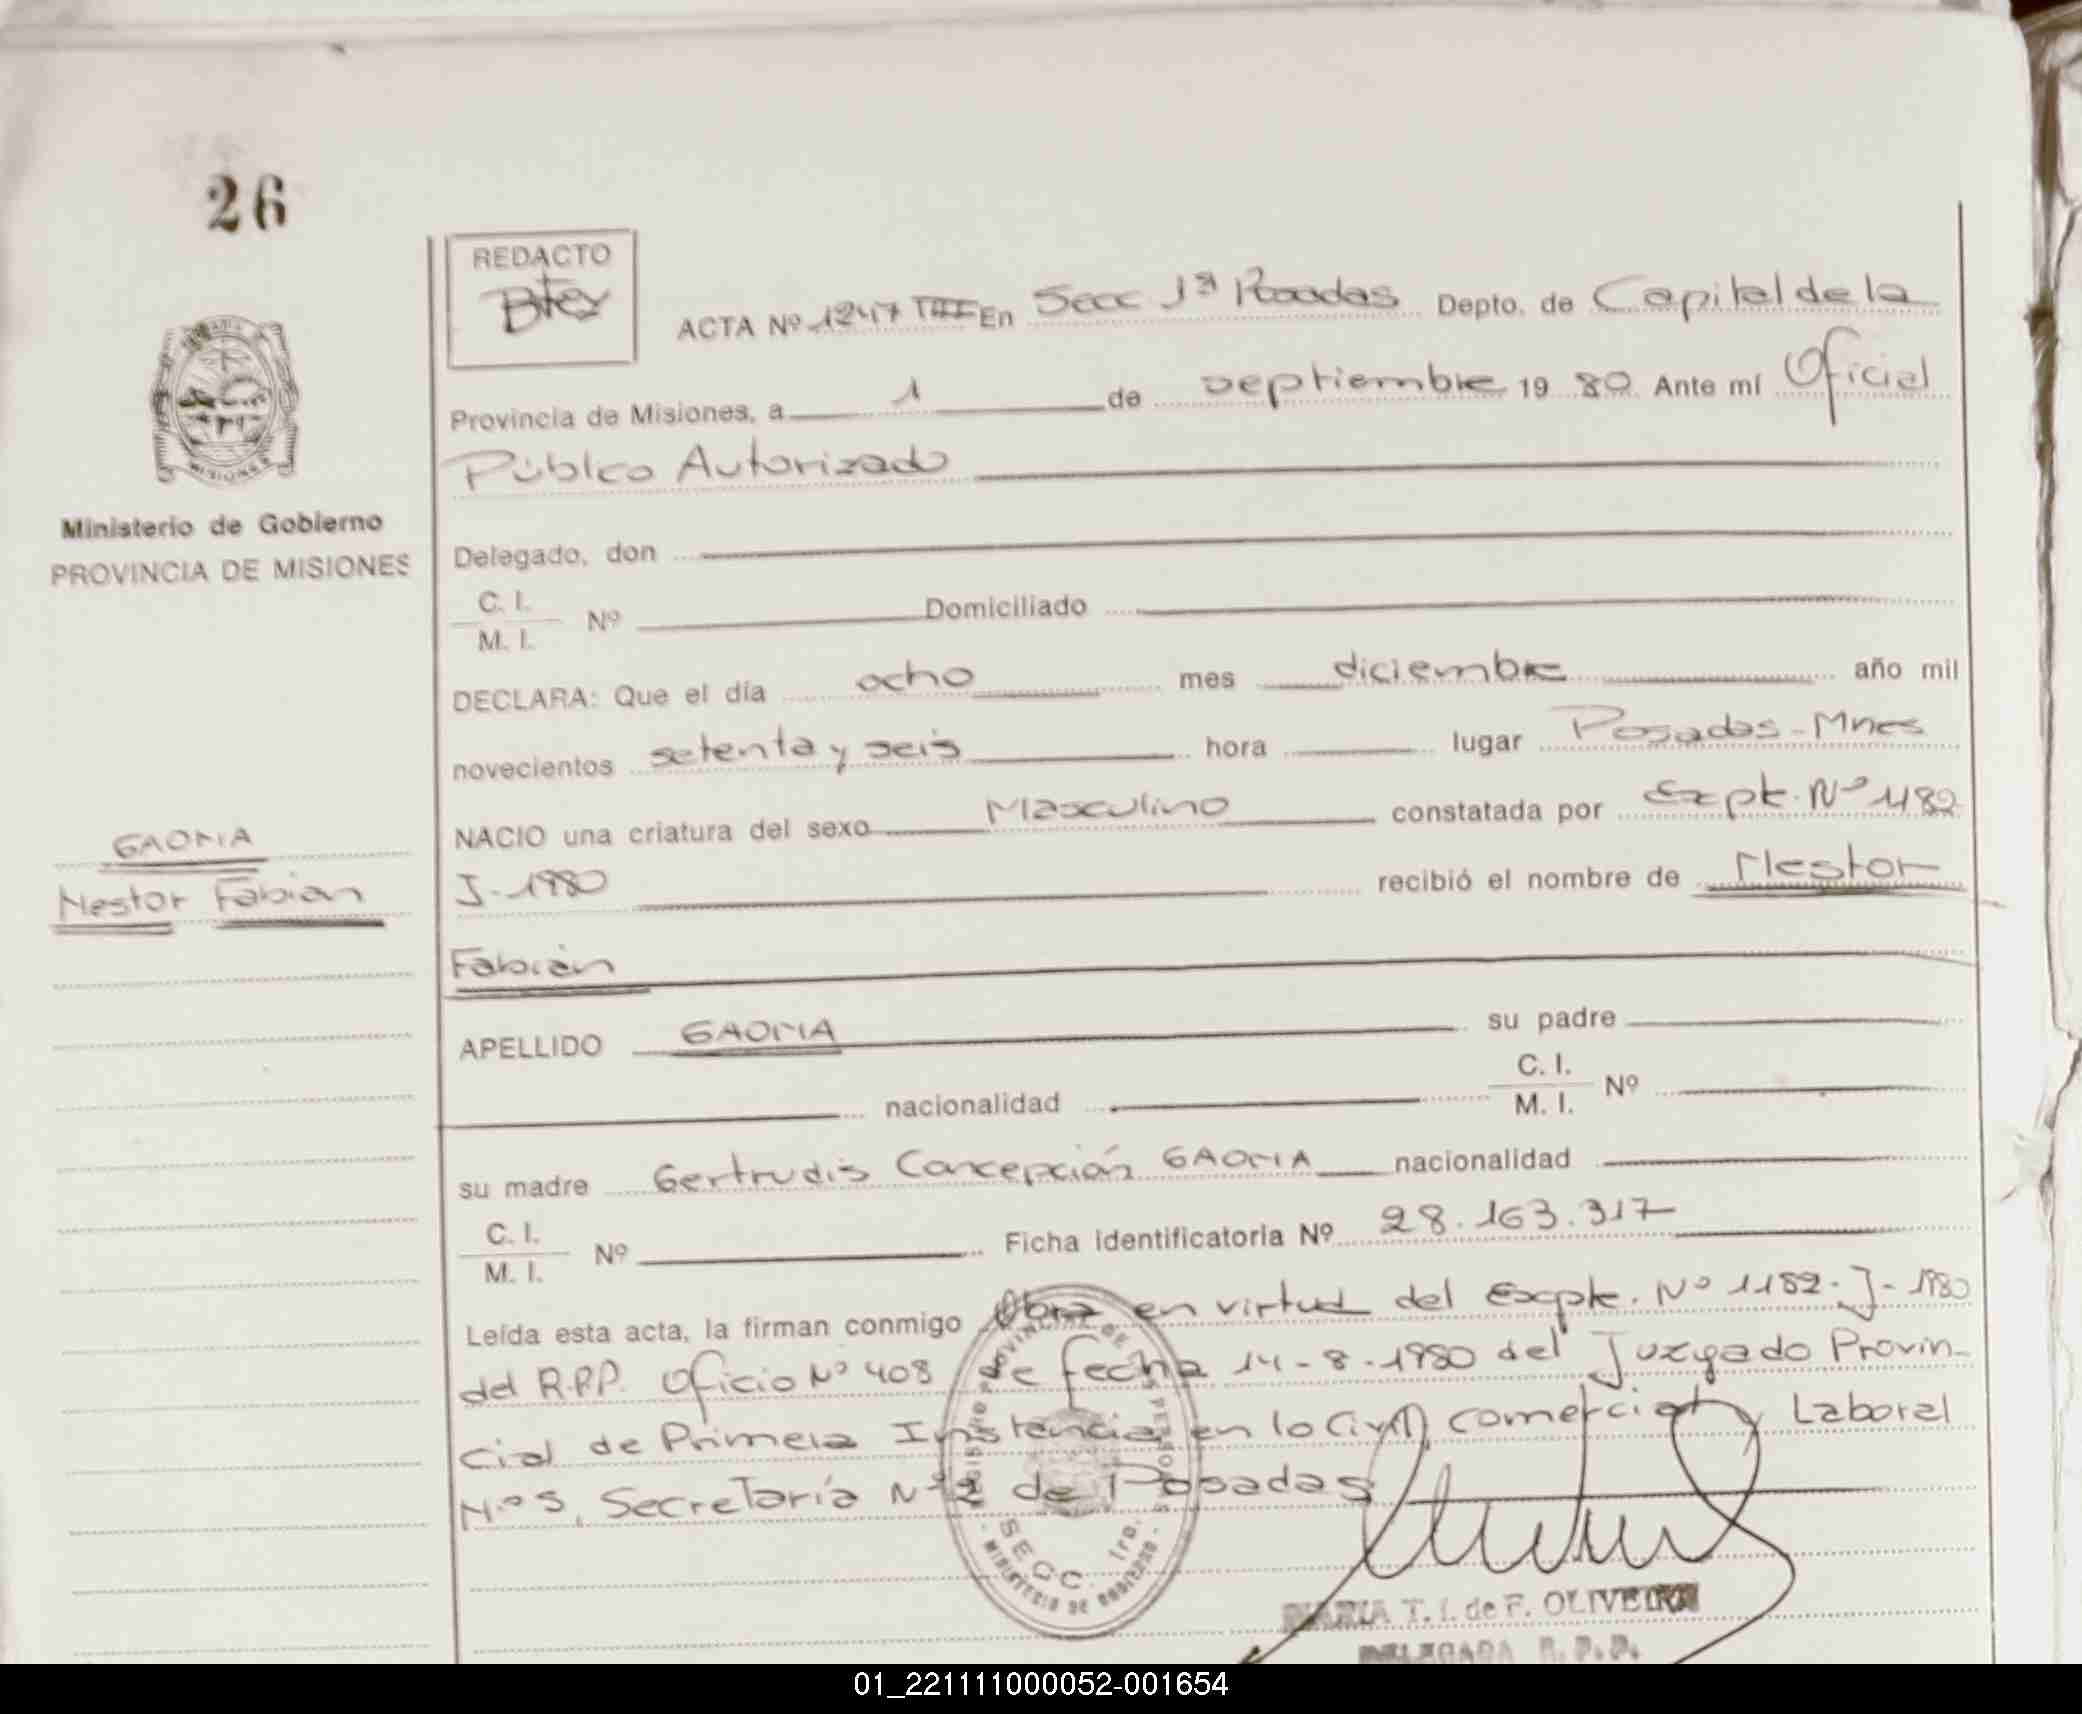 26
REDACTO
ACTA Nº 1247 TIII En Secc 1ª Posadas Depto. de Capital de la
Provincia de Misiones, a 1 de septiembre 19 80 Ante mí Oficial
Público Autorizado
MISIONES
Ministerio de Gobierno
PROVINCIA DE MISIONES
Delegado, don
C. I.
M. I. Nº Domiciliado
DECLARA: Que el día ocho mes diciembre año mil
novecientos setenta y seis hora lugar Posadas-Mnes
NACIO una criatura del sexo Masculino constatada por Expte. Nº 1182
GAONA
Nestor Fabian
J-1980 recibió el nombre de Nestor
Fabián
APELLIDO GAONA su padre
nacionalidad C. I.
M. I. Nº
su madre Gertrudis Concepción GAONA nacionalidad
C. I.
M. I. Nº Ficha identificatoria Nº 28.163.317
Leída esta acta, la firman conmigo Obra en virtud del Expte. Nº 1182-J-1980
del R.P.P. Oficio Nº 408 de fecha 14-8-1980 del Juzgado Provin-
cial de Primera Instancia en lo Civil, Comercial y Laboral
Nº 5, Secretaría Nº 2 de Posadas
SECC. 1ra.
MINISTERIO DE GOBIERNO
MARIA T. I. de F. OLIVEIRA
DELEGADA R. P. P.
01_221111000052-001654